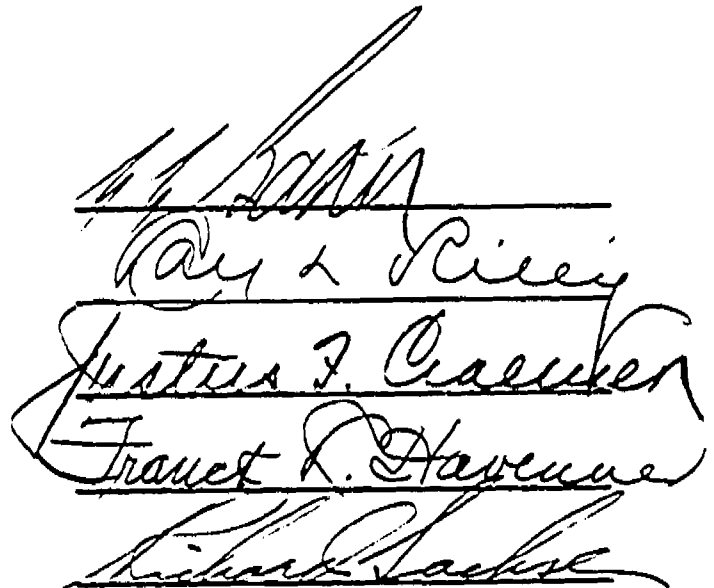 Ray L Riley
Justus F. Craemer
Franck R. Havenner
Richard Sachse